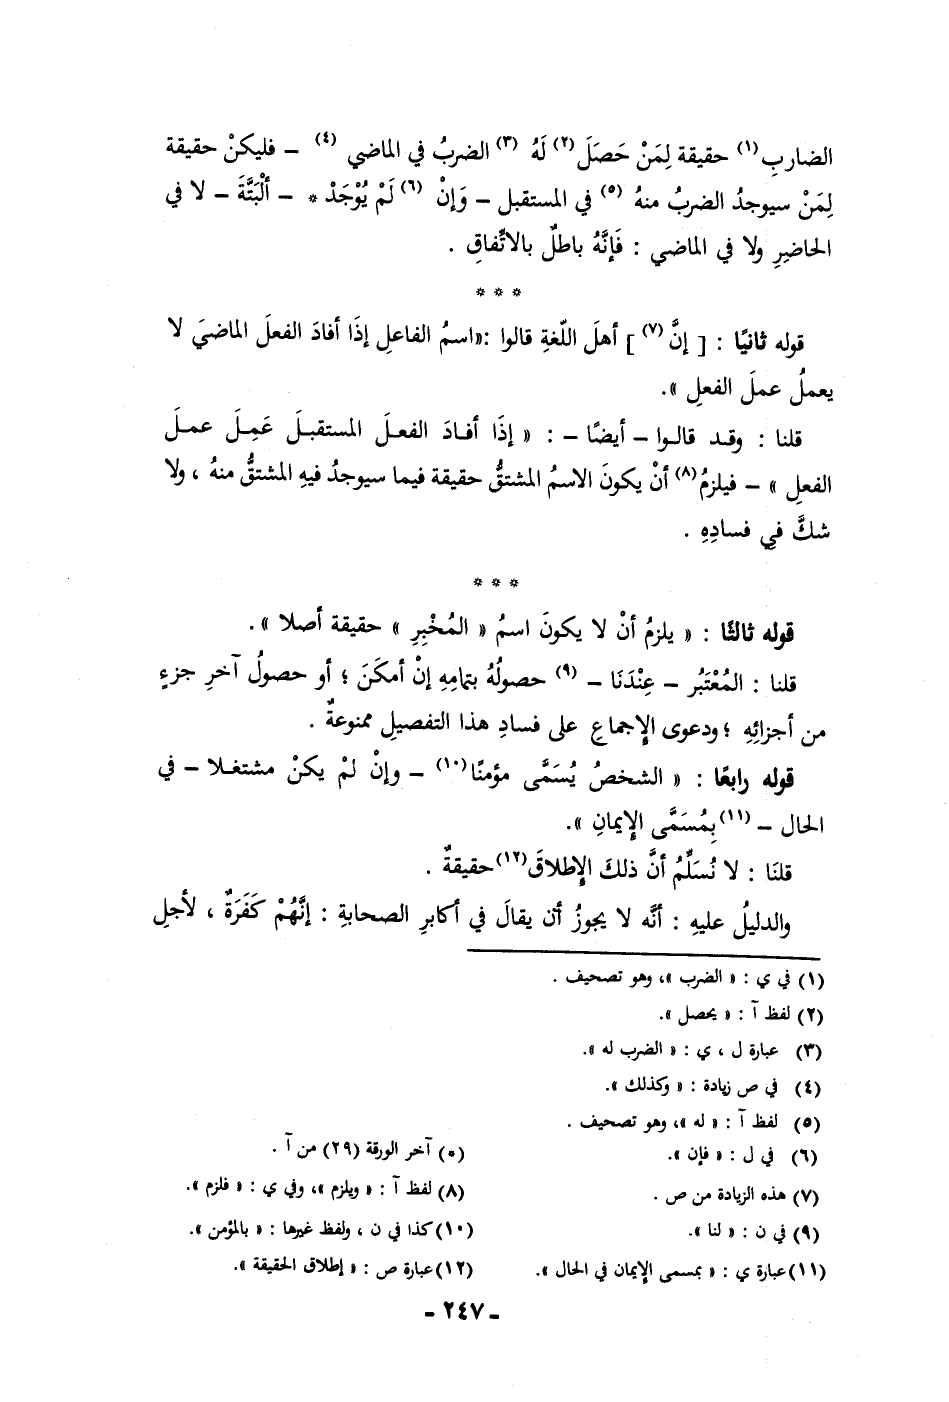 الضاربِ (١) حقيقة لِمَنْ حَصَلَ (٢) لَهُ (٣) الضربُ في الماضي (٤) – فليكنْ حقيقة
لِمَنْ سيوجدُ الضربُ منهُ (٥) في المستقبل – وَإِنْ (٦) لَمْ يُوْجَدْ * – ألْبَتَّةَ – لا في
الحاضِرِ ولا في الماضي : فَإِنَّهُ باطلٌ بالاتِّفاقِ .
* * *
قوله ثانيًا : [ إنَّ (٧) ] أهلَ اللّغةِ قالوا :«اسمُ الفاعلِ إذَا أفادَ الفعلَ الماضيَ لا
يعملُ عملَ الفعلِ ».
قلنا : وقد قالوا – أيضًا – : « إذَا أفادَ الفعلَ المستقبلَ عَمِلَ عملَ
الفعلِ » – فيلزمُ (٨) أنْ يكونَ الاسمُ المشتقُّ حقيقة فيما سيوجدُ فيهِ المشتقُّ منهُ ، ولا
شكَّ في فسادِهِ .
* * *
قوله ثالثًا : « يلزمُ أنْ لا يكونَ اسمُ « المُخْبِرِ » حقيقة أصلا ».
قلنا : المُعْتَبَرُ – عِنْدَنَا – (٩) حصولُهُ بتمامِهِ إنْ أمكَنَ ؛ أو حصولُ آخرِ جزءٍ
من أجزائِهِ ؛ ودعوى الإِجماعِ على فسادِ هذا التفصيلِ ممنوعةٌ .
قوله رابعًا : « الشخصُ يُسَمَّى مؤمنًا (١٠) – وإنْ لمْ يكنْ مشتغلا – في
الحال – (١١) بِمُسَمَّى الإِيمانِ ».
قلنَا : لا نُسَلِّمُ أنَّ ذلكَ الإِطلاقَ (١٢) حقيقةٌ .
والدليلُ عليهِ : أنَّه لا يجوزُ أن يقالَ في أكابرِ الصحابةِ : إنَّهُمْ كَفَرَةٌ ، لأجلِ
(١) في ي : « الضرب »، وهو تصحيف .
(٢) لفظ آ : « يحصل ».
(٣) عبارة ل ، ي : « الضرب له ».
(٤) في ص زيادة : « وكذلك ».
(٥) لفظ آ : « له »، وهو تصحيف .
(٦) في ل : « فإن ». (*) آخر الورقة (٢٩) من آ .
(٧) هذه الزيادة من ص . (٨) لفظ آ : « ويلزم »، وفي ي : « فلزم ».
(٩) في ن : « لنا ». (١٠) كذا في ن ، ولفظ غيرها : « بالمؤمن ».
(١١) عبارة ي : « بمسمى الإِيمان في الحال ». (١٢) عبارة ص : « إطلاق الحقيقة ».
- ٢٤٧ -